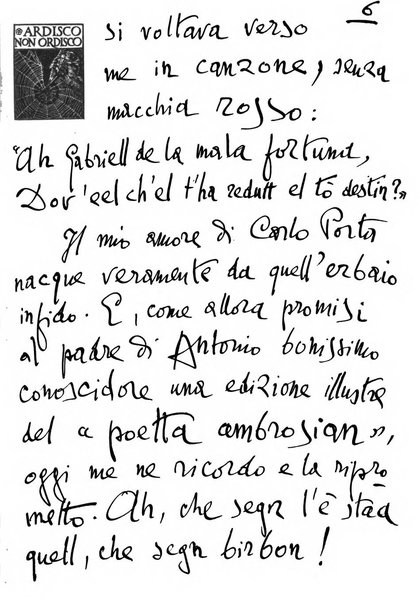 6
ARDISCO
NON ORDISCO
si voltava verso
me in canzone, senza
macchia rosso:
"Ah Gabriell de la mala fortuna,
Dov'eel ch'el t'ha redutt el tò destin?"
Il mio amore di Carlo Porta
nacque veramente da quell'erbaio
infido. E, come allora promisi
al padre di Antonio bonissimo
conoscidore una edizione illustre
del « poetta ambrosian»,
oggi me ne ricordo e la ripro
metto. Ah, che segn l'è staa
quell, che segn birbon!